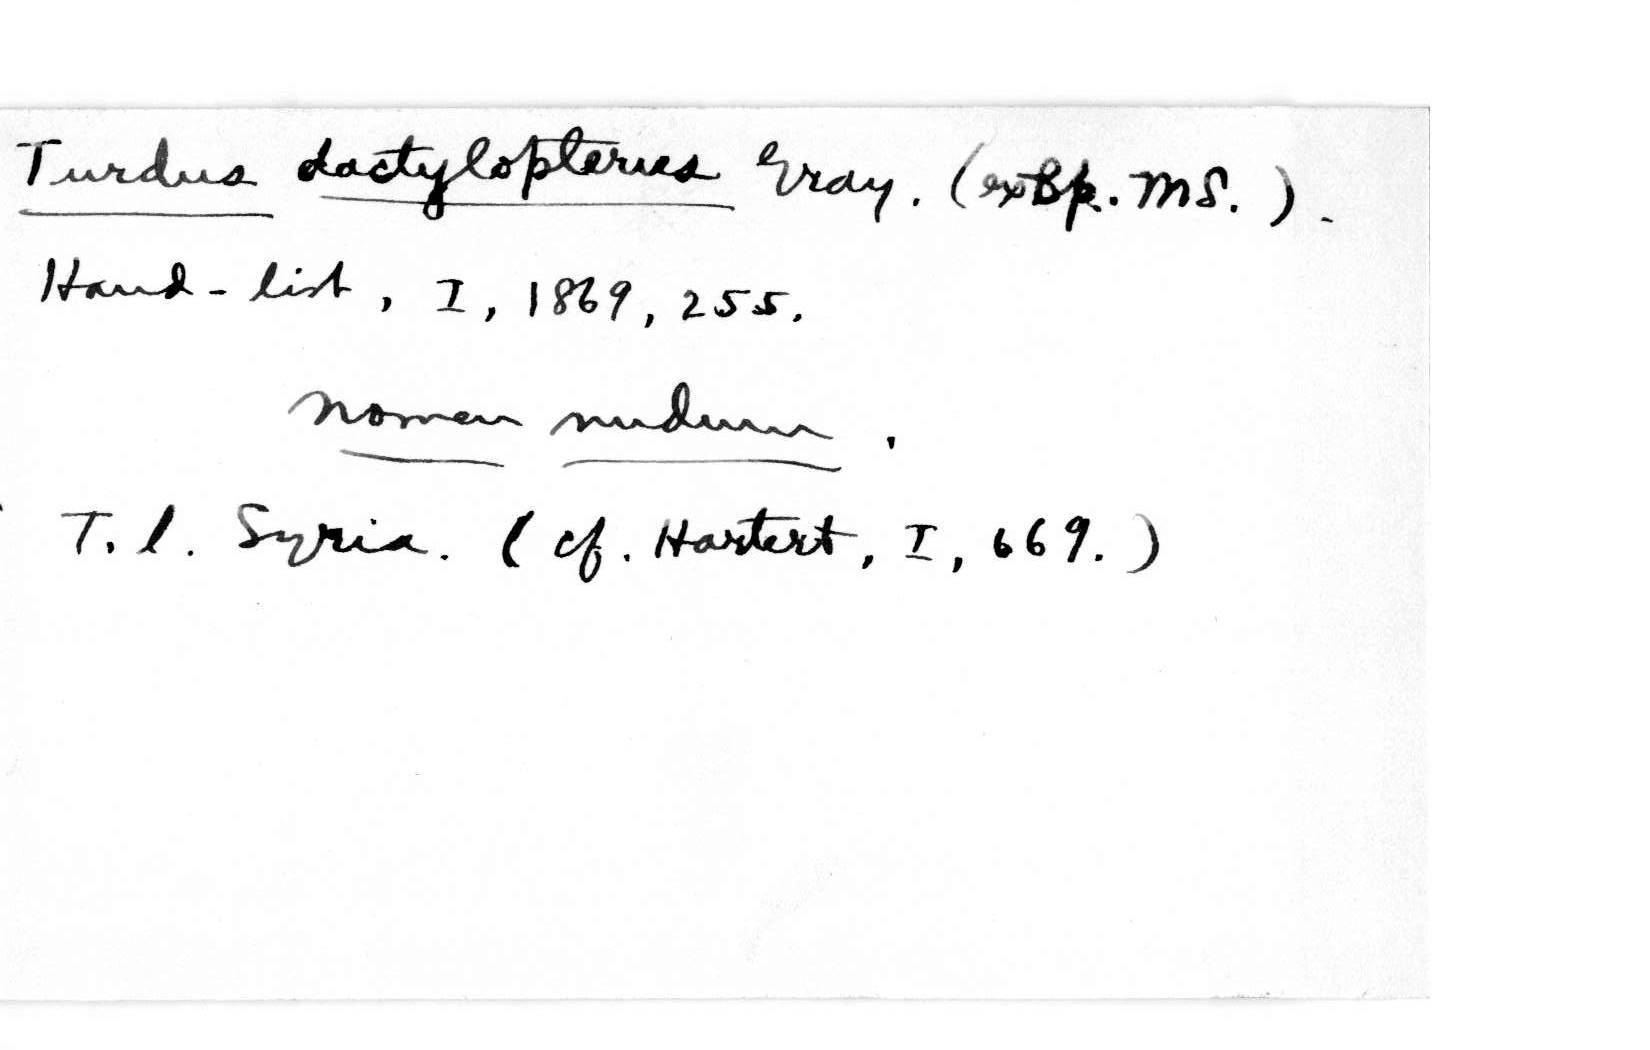 Turdus dactylopterus Gray. (ex Bp. MS.).
Hand-list, I, 1869, 255.
nomen nudum.
T. l. Syria. (cf. Hartert, I, 669.)